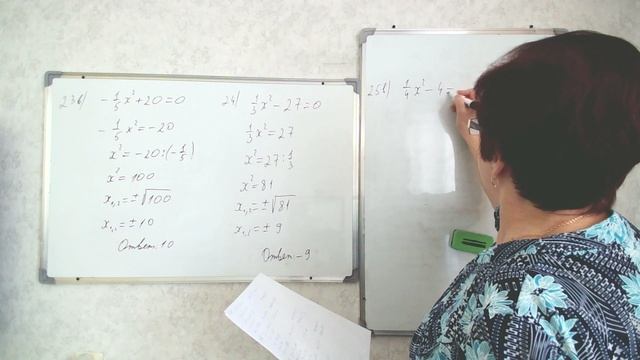 23б) -1/5 x² + 20 = 0
-1/5 x² = -20
x² = -20 : (-1/5)
x² = 100
x₁,₂ = ±√100
x₁,₂ = ± 10
Ответ: 10
24) 1/3 x² - 27 = 0
1/3 x² = 27
x² = 27 : 1/3
x² = 81
x₁,₂ = ±√81
x₁,₂ = ± 9
Ответ: -9
25б) 1/4 x² - 4 =